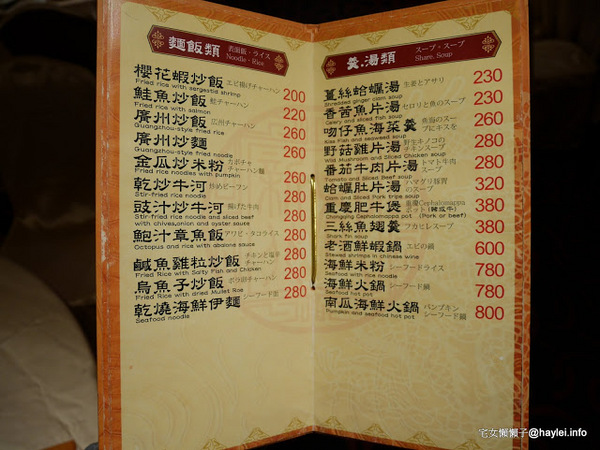 麵飯類
Noodle、Rice
櫻花蝦炒飯 200
Fried rice with sergestid shrimp
鮭魚炒飯 チャーハン 220
Fried rice with salmon
廣州炒飯 広州チャーハン 260
Guangzhou-style fried rice
廣州炒麵 260
Guangzhou-style fried noodle
金瓜炒米粉 260
Fried rice noodles with pumpkin
乾炒牛河 炒めビーフン 280
Stir-fried rice noodle
豉汁炒牛河 揚げた牛肉 280
Stir-fried rice noodle and sliced beef
with chives,onion and oyster sauce
鮑汁章魚飯 アワビ・タコライス 280
Octopus and rice with abalone sauce
鹹魚雞粒炒飯 280
Fried Rice with Salty Fish and Chicken
烏魚子炒飯 280
Fried Rice with dried Mullet Roe
乾燒海鮮伊麵 シーフード麺 280
Seafood noodle
羹.湯類
スープ・スープ
Share, Soup
薑絲蛤蠣湯 生姜とアサリ 230
Shredded ginger clam soup
香茜魚片湯 セロリと魚のスープ 230
Celery and sliced fish soup
吻仔魚海菜羹 260
Kiss Fish and seaweed soup
野菇雞片湯 野生キノコのチキンスープ 280
Wild mushroom and Sliced Chicken soup
番茄牛肉片湯 トマト牛肉 280
Tomato and Sliced Beef soup
蛤蠣肚片湯 ハマグリ豚胃のスープ 320
Clam and Sliced Pork tripe soup
重慶肥牛煲 重慶Cephalomappaポット 380
Chongqing Cephalomappa pot (Pork or beef)
三絲魚翅羹 フカヒレスープ 380
Shark fin soup
老酒鮮蝦鍋 エビの鍋 600
Stewed shrimps in chinese wine
海鮮米粉 シーフードライス 780
Seafood with rice noodle
海鮮火鍋 シーフード鍋 780
Seafood hot pot
南瓜海鮮火鍋 パンプキンシーフード鍋 800
Pumpkin and seafood hot pot
宅女懶懶子@haylei.info